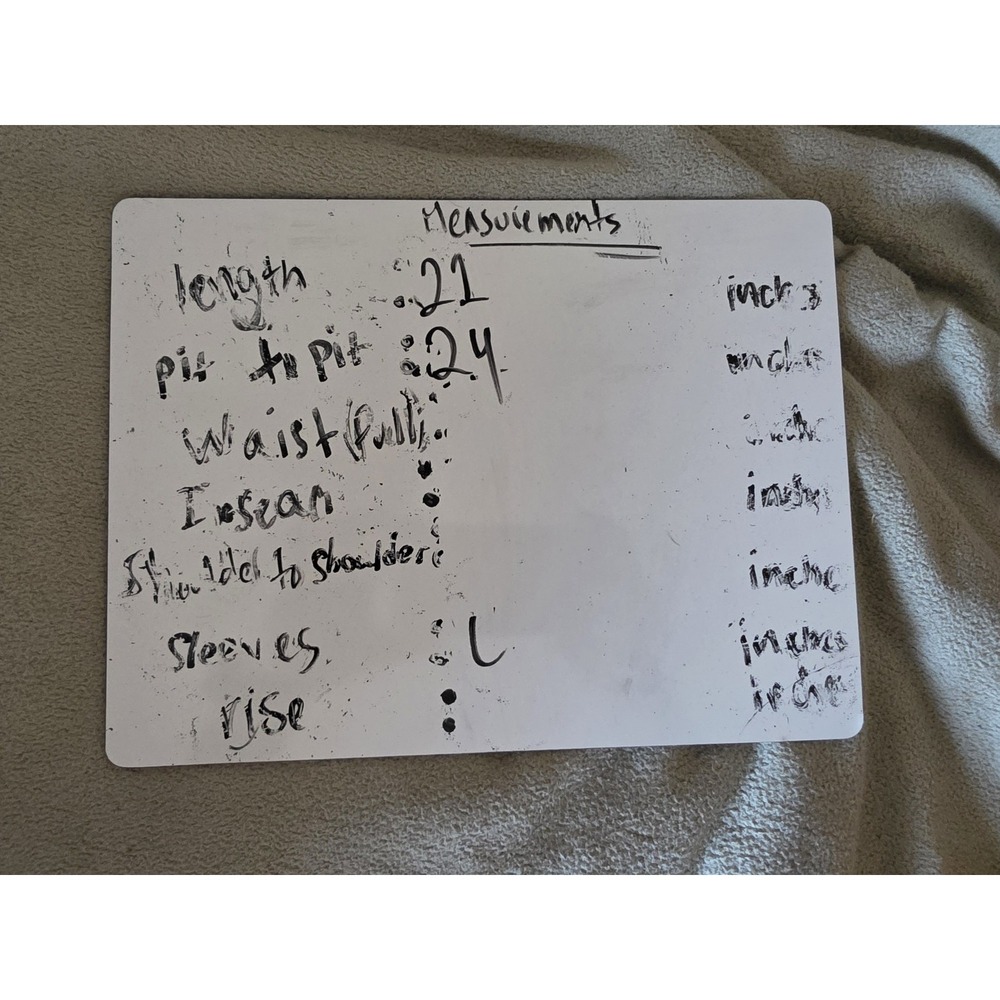 Measurements
length : 21 inches
pit to pit : 24 inches
Waist (full) : inches
Inseam : inches
Shoulder to Shoulder : inches
Sleeves : L inches
rise : inches